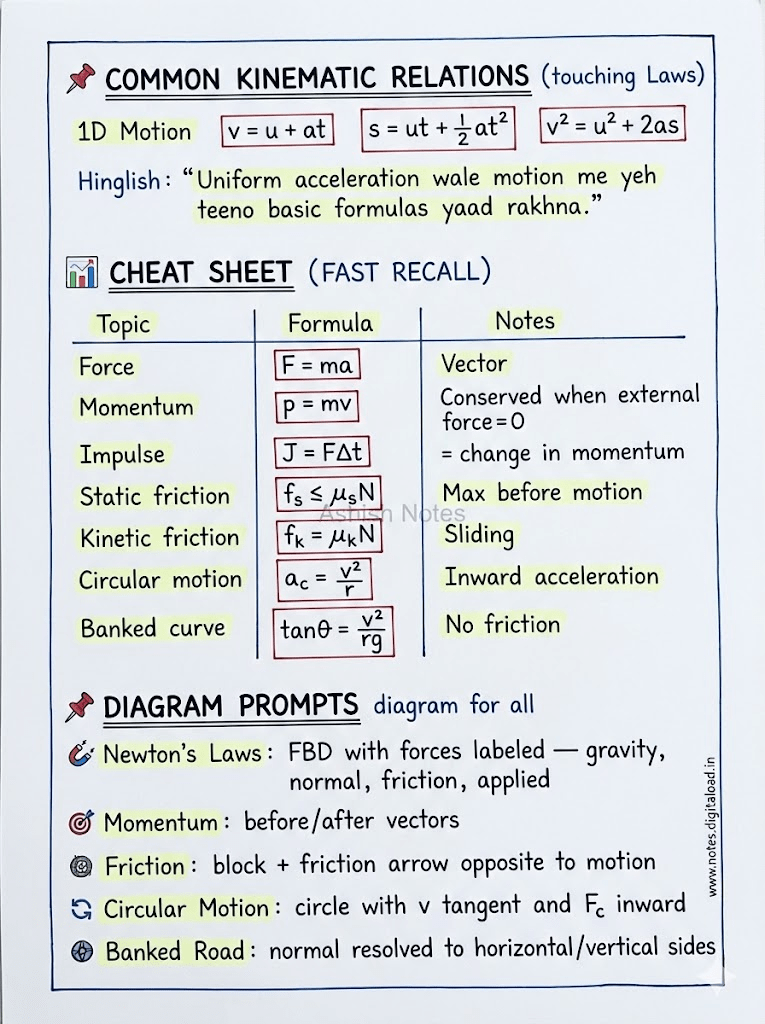 COMMON KINEMATIC RELATIONS (touching Laws)
1D Motion v = u + at s = ut + 1/2 at² v² = u² + 2as
Hinglish: “Uniform acceleration wale motion me yeh
teeno basic formulas yaad rakhna.”
CHEAT SHEET (FAST RECALL)
Topic Formula Notes
Force F = ma Vector
Momentum p = mv Conserved when external
force = 0
Impulse J = FΔt = change in momentum
Static friction fₛ ≤ μₛN Max before motion
Ashish Notes
Kinetic friction fₖ = μₖN Sliding
Circular motion a_c = v²/r Inward acceleration
Banked curve tanθ = v²/rg No friction
DIAGRAM PROMPTS diagram for all
Newton’s Laws: FBD with forces labeled — gravity,
normal, friction, applied
Momentum: before/after vectors
Friction: block + friction arrow opposite to motion
Circular Motion: circle with v tangent and F_c inward
Banked Road: normal resolved to horizontal/vertical sides
www.notes.digitaload.in